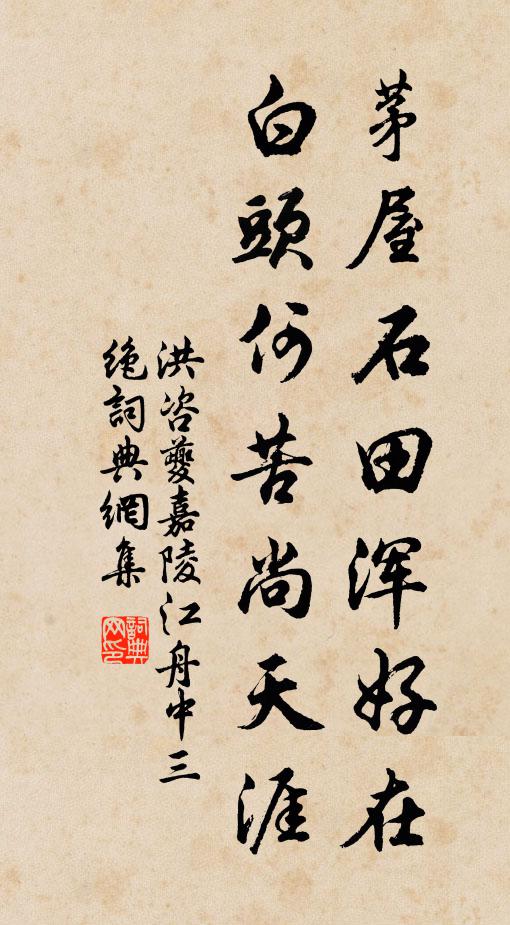 茅屋石田浑好在
白頭何苦尚天涯
洪咨夔嘉陵江舟中三
绝詞典網集
詞典
网印